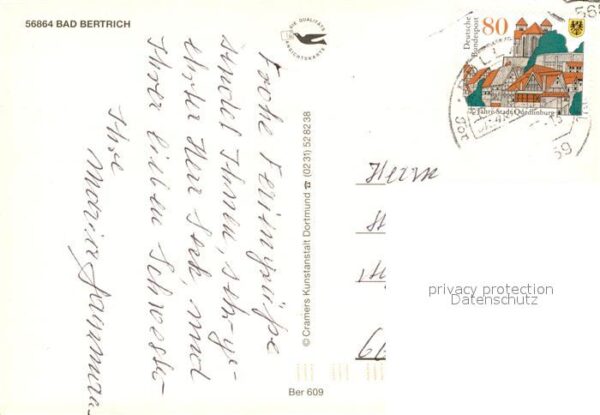 56864 BAD BERTRICH
DIE QUALITÄTS
ANSICHTSKARTE
Frohe Feriengrüße
sendet Ihnen, sehr ge-
ehrter Herr
und
Ihrer lieben Schwester
Ihre
© Cramers Kunstanstalt Dortmund ☎ (0231) 528238
Ber 609
Deutsche
Bundespost
80
Jahre Stadt Quedlinburg
Herrn
privacy protection
Datenschutz